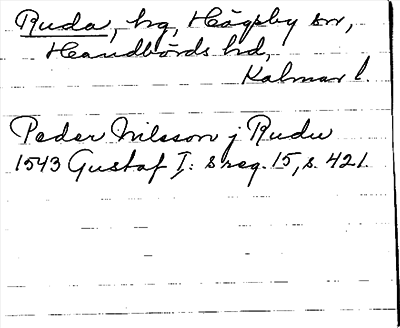 Ruda, hg, Högsby sn,
Handbörds hd,
Kalmar l.
Peder Nilsson j Rudu
1543 Gustaf I: s reg. 15, s. 421.